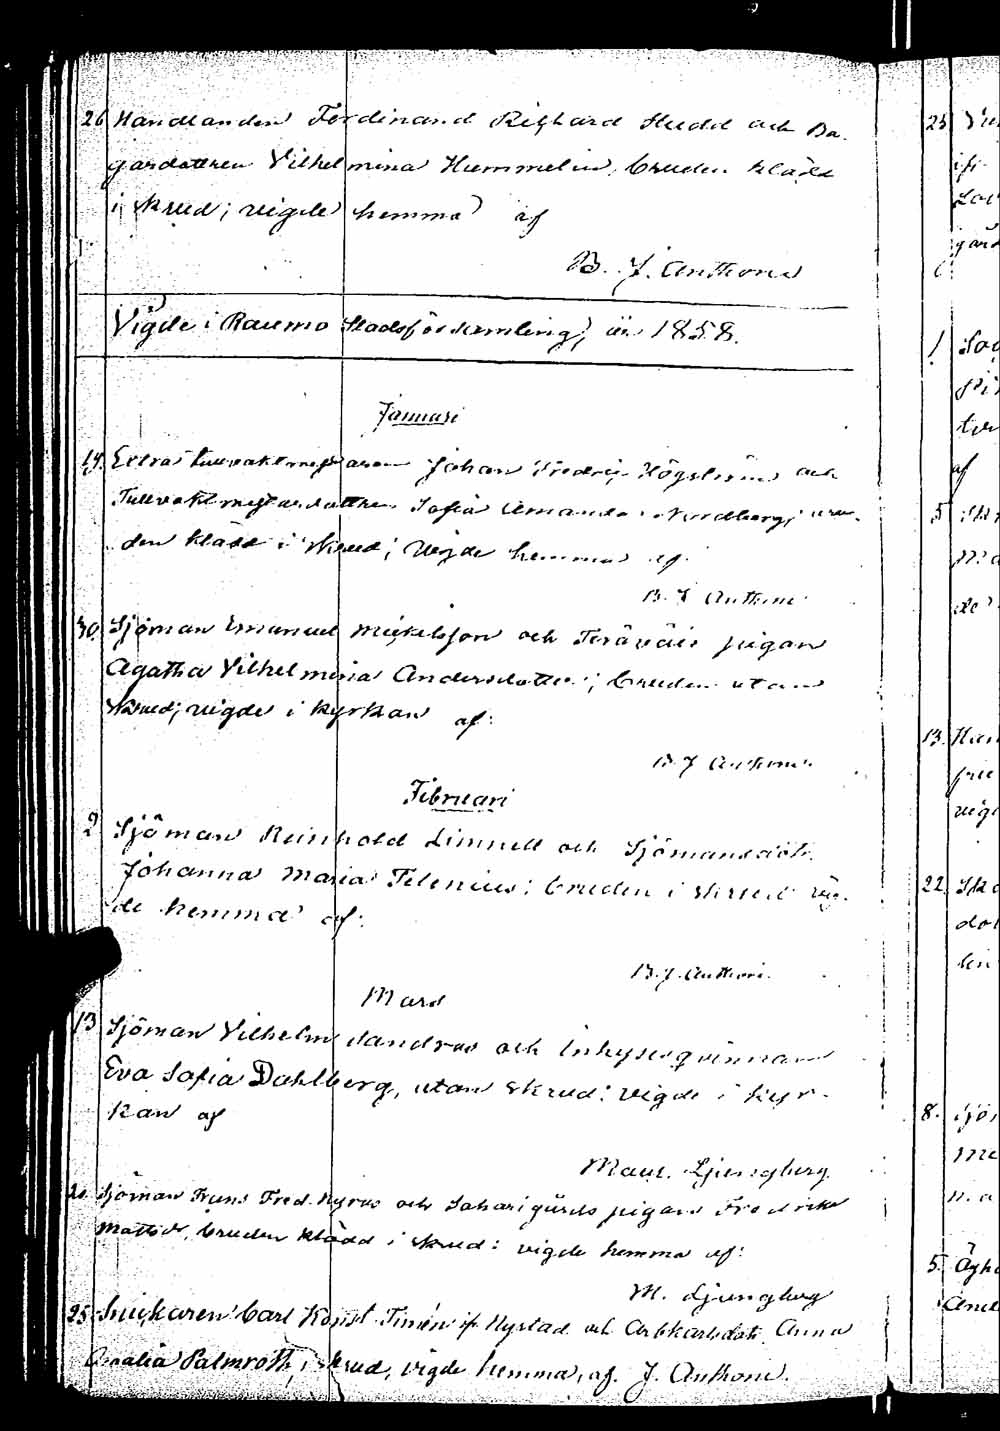 26 Handlanden Ferdinand Richard Hudd och Ba-
gardottren Vilhelmina Hummelin, bruden klädd
i skrud; vigde hemma af
B. J. Anthoni
Vigde i Raumo Stadsförsamling, år 1858.
Januari
14. Extra tullvaktmästaren Johan Fredrik Högström och
Tullvaktmästaredottren Sofia Amanda Nordberg; bru-
den klädd i skrud; vigde hemma af
B. J. Anthoni
30. Sjöman Emanuel Mickelsson och pigan
Agatha Vilhelmina Andersdotter; bruden utan
skrud; vigde i kyrkan af:
B. J. Anthoni
Februari
2 Sjöman Reinhold Linnell och Sjömansdótr
Johanna Maria Telenius: bruden i skrud vig-
de hemma af:
B. J. Anthoni.
Mars
13 Sjöman Vilhelm Sandroos och Inhysesqvinnan
Eva Sofia Dahlberg, utan skrud: vigde i kyr-
kan af
Maur. Ljungberg.
Sjöman Frans Fred. Nyroos och pigan Fredrika
Mattsdr, bruden klädd i skrud: vigde hemma af:
M. Ljungberg
25 Snickaren Carl Konst. Timén ifr Nystad och Arbkarlsdotr Anna
Amalia Palmroth, i skrud, vigde hemma, af. J. Anthoni.
23
1
5
13.
22
8.
5.
af